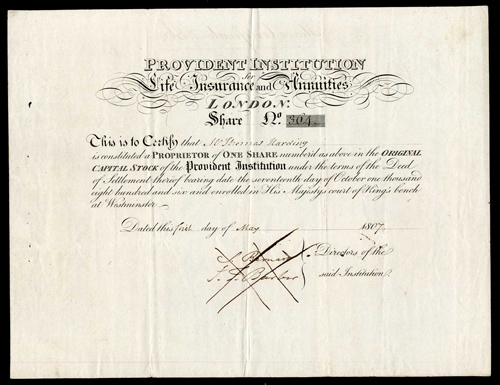 PROVIDENT INSTITUTION
for
Life Insurance and Annuities
LONDON.
Share No. 304
This is to Certify that Mr. Thomas Harding
is constituted a PROPRIETOR of ONE SHARE number'd as above in the ORIGINAL
CAPITAL STOCK of the Provident Institution under the terms of the Deed
of Settlement thereof bearing date the seventeenth day of October one thousand
eight hundred and six and enrolled in His Majesty's court of King's bench
at Westminster
Dated this first day of May 1807.
Directors of the
said Institution